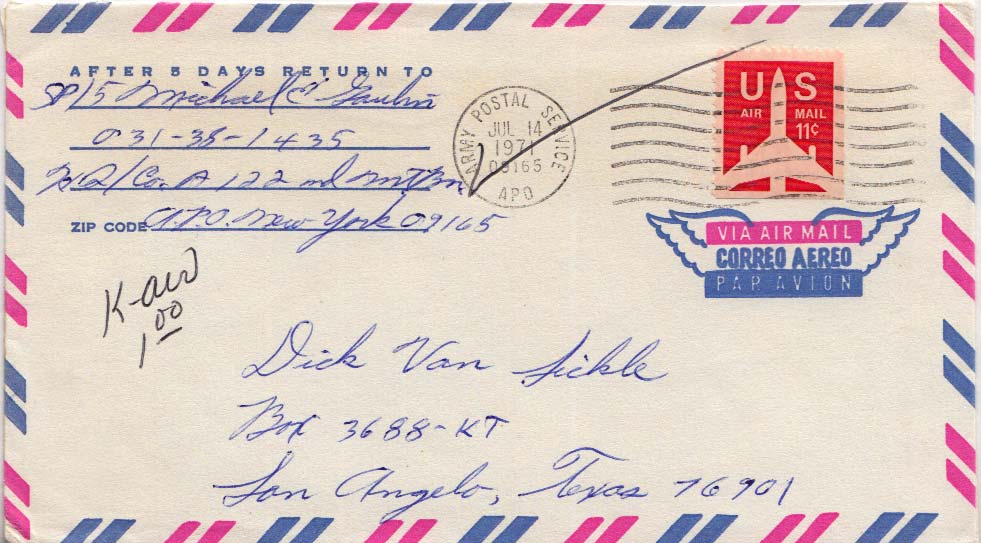 AFTER 5 DAYS RETURN TO
SP/5 Michael
031-38-1435
HQ/Co. A 122nd Mt. Bn
ZIP CODE A.P.O. New York 09165
ARMY POSTAL SERVICE
JUL 14
1971
09165
APO
US
AIR MAIL
11¢
VIA AIR MAIL
CORREO AEREO
PAR AVION
K-air
1.00
Dick Van Sickle
Box 3688-KT
San Angelo, Texas 76901